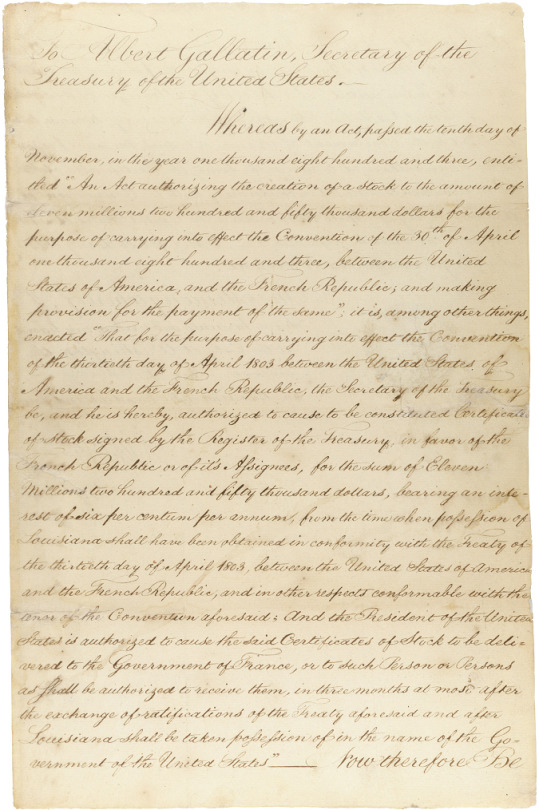 To Albert Gallatin, Secretary of the
Treasury of the United States.—
Whereas by an Act, passed the tenth day of
November, in the year one thousand eight hundred and three, enti-
tled "An Act authorizing the creation of a stock to the amount of
eleven millions two hundred and fifty thousand dollars for the
purpose of carrying into effect the Convention of the 30th of April
one thousand eight hundred and three, between the United
States of America, and the French Republic; and making
provision for the payment of the same"; it is, among other things,
enacted "That for the purpose of carrying into effect the Convention
of the thirtieth day of April 1803 between the United States of
America and the French Republic, the Secretary of the Treasury
be, and he is hereby, authorized to cause to be constituted Certificates
of stock signed by the Register of the Treasury, in favor of the
French Republic or of its Assignees, for the sum of Eleven
Millions two hundred and fifty thousand dollars, bearing an inte-
rest of six per centum per annum, from the time when possession of
Louisiana shall have been obtained in conformity with the Treaty of
the thirtieth day of April 1803, between the United States of America
and the French Republic, and in other respects conformable with the
tenor of the Convention aforesaid; And the President of the United
States is authorized to cause the said Certificates of Stock to be deli-
vered to the Government of France, or to such Person or Persons
as shall be authorized to receive them, in three months at most after
the exchange of ratifications of the Treaty aforesaid and after
Louisiana shall be taken possession of in the name of the Go-
vernment of the United States"—— Now therefore Be